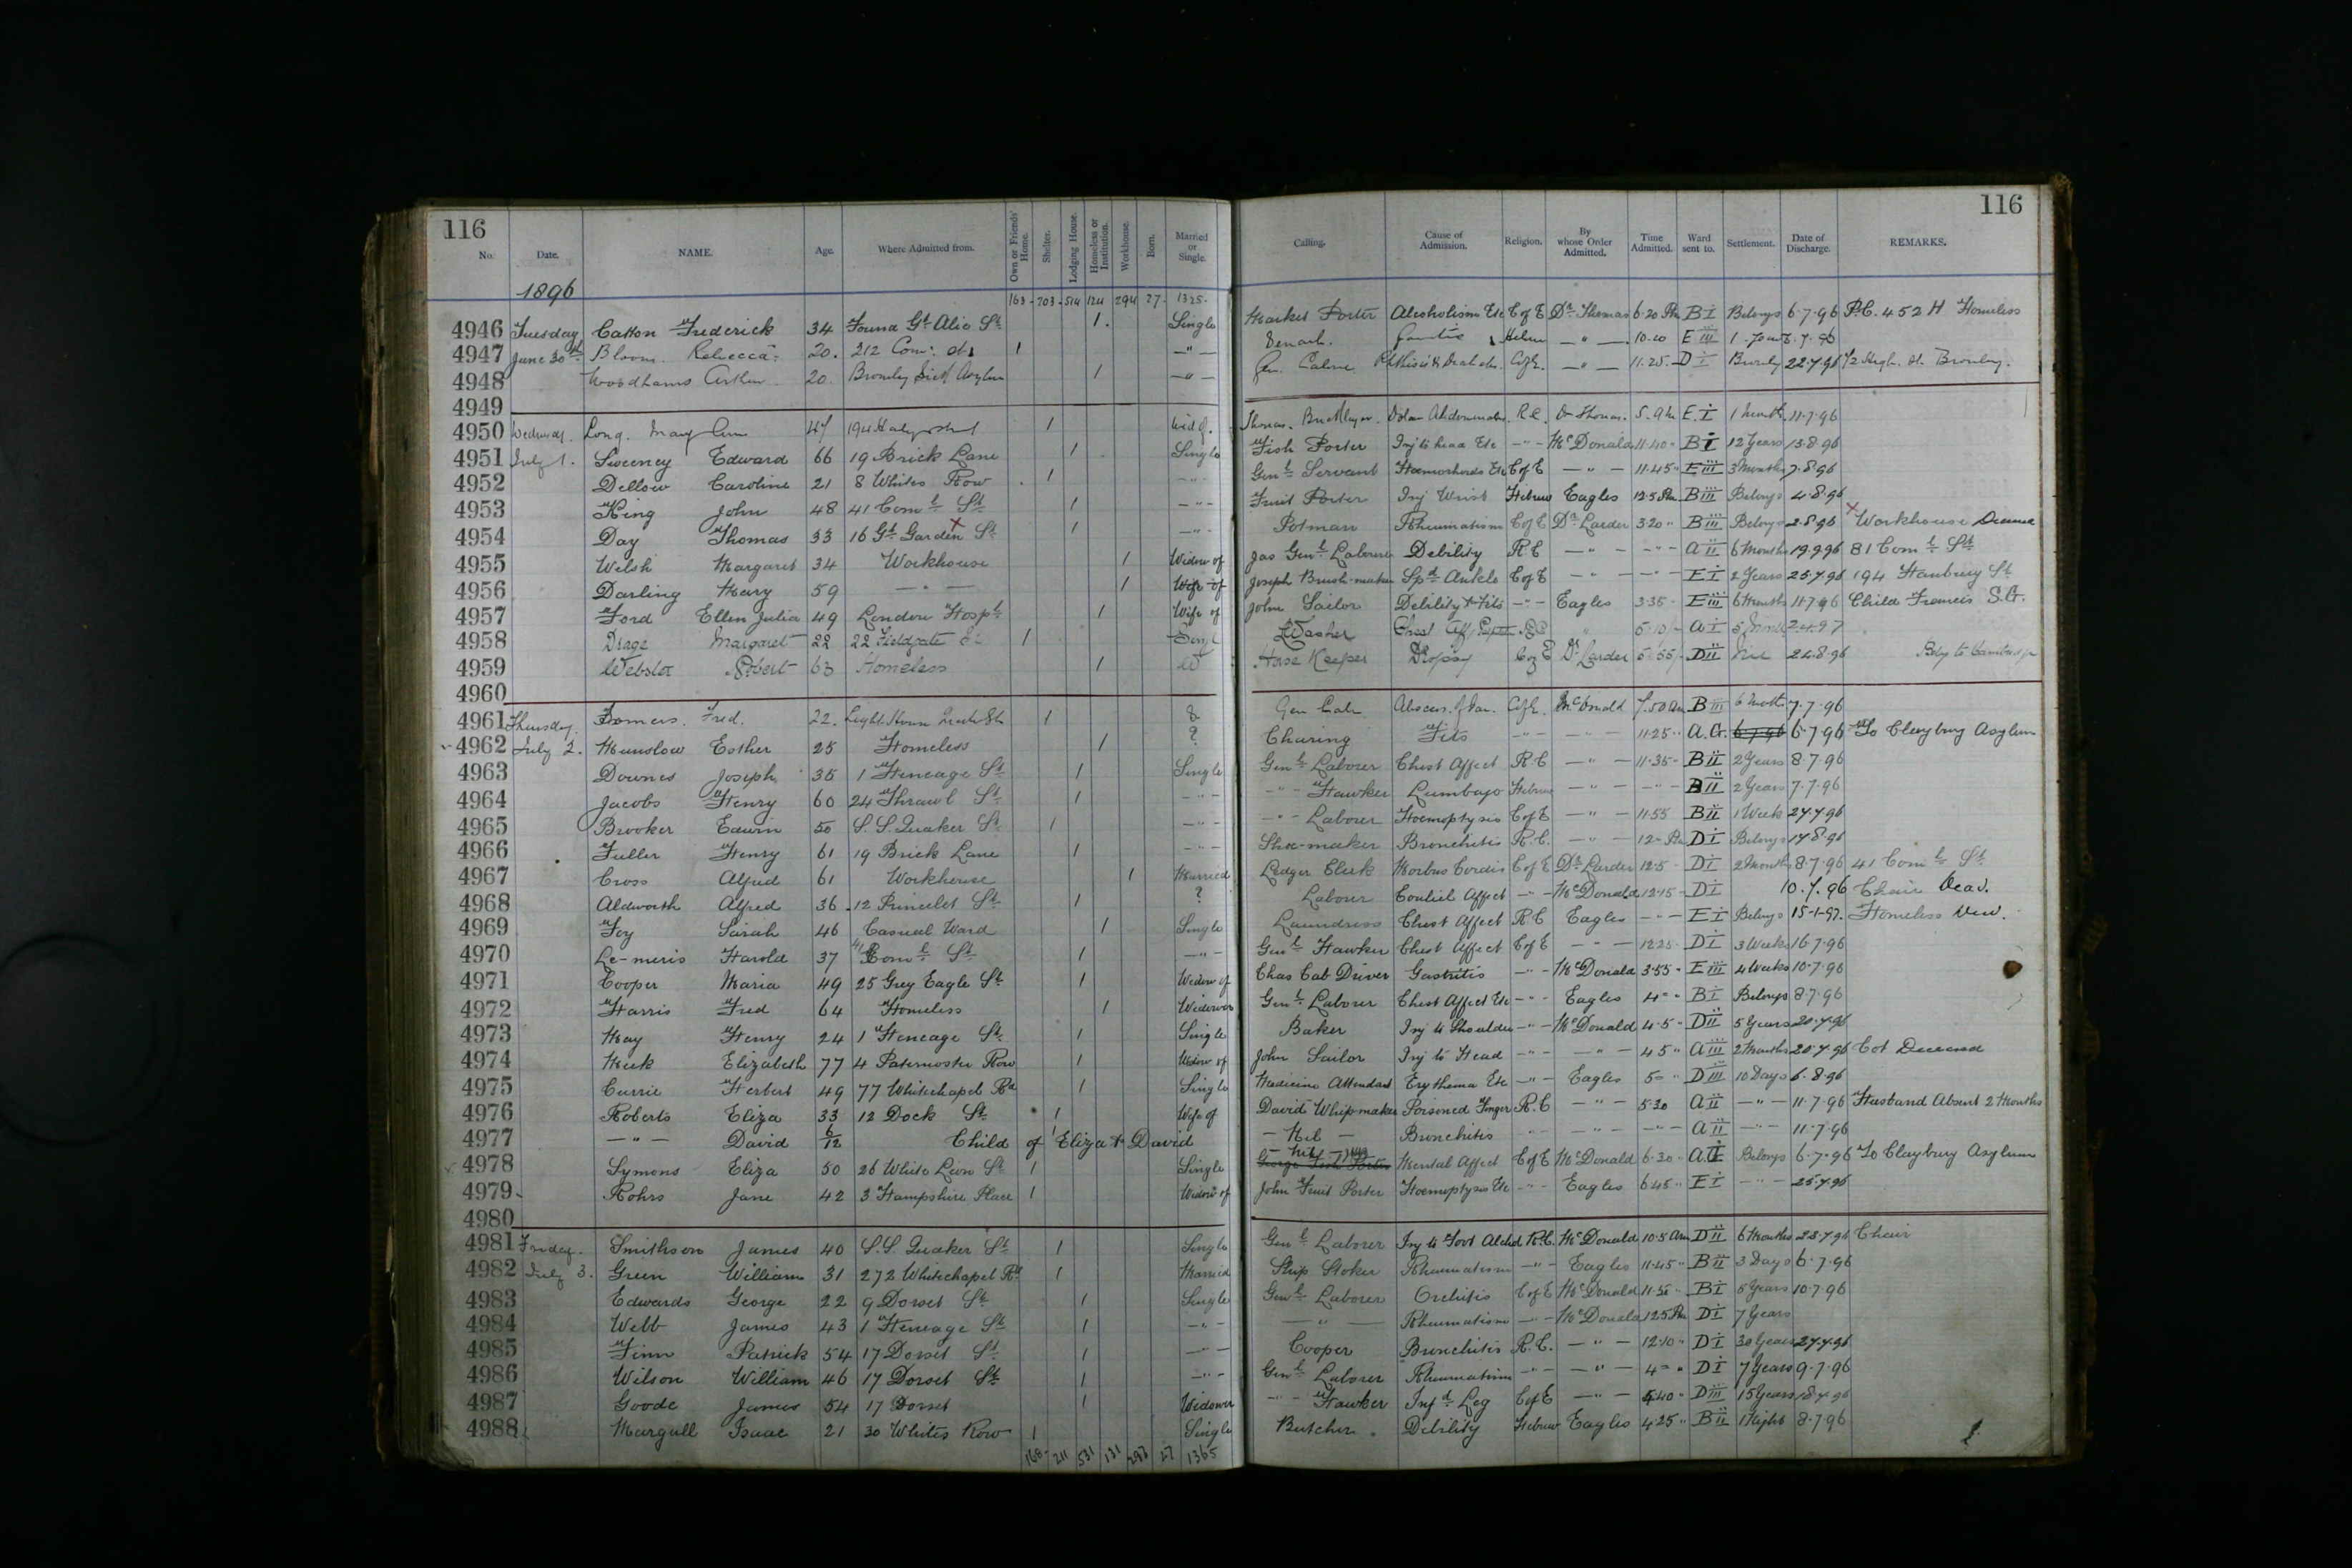 116 116
No. Date. NAME. Age. Where Admitted from. Own or Friends' Home. Shelter. Lodging House. Homeless or Institution. Workhouse. Born. Married or Single. Calling. Cause of Admission. Religion. By whose Order Admitted. Time Admitted. Ward sent to. Settlement. Date of Discharge. REMARKS.
1896 163 - 203 - 514 124 294 27 - 1325 -
4946 Tuesday Catton Frederick 34 Found Gt Alie St 1 Single Market Porter Alcoholism Etc C of E Dr Thomas 6.20 Pm B i Belongs 6.7.96 P.C. 452 H Homeless
4947 June 30th Bloom Rebecca 20. 212 Com. 1 — " — — " — 10.20 E iii 1
4948 Woodhams 20. Bromley Sick Asylum 1 — " — Phthisis & — " — 11.25 - D i 22.7.96 High St. Bromley.
4949
4950 Wednesday Long. Mary Ann 47 194 1 Wid of. Thomas. Bricklayer. R.C. Dr Thomas. 5. E. i 1 month 11.7.96
4951 July 1. Sweeney Edward 66 19 Brick Lane 1 Single Fish Porter Inj to head Etc - " - McDonald 11.40 " B i 12 Years 13.8.96
4952 Dellow Caroline 21 8 Whites Row 1 - " - Genl Servant Hæmorrhoids Etc C of E — " — 11.45 " E iii 3 Months 7.8.96
4953 King John 48 41 Coml St 1 — " - Fruit Porter Inj Wrist Hebrew Eagles 12.5 Pm B iii Belongs 4.8.96
4954 Day Thomas 33 16 Gt Garden St 1 — " - Potman Rheumatism C of E Dr Larder 3.20 " B iii Belongs 2.8.96 Workhouse
4955 Welsh Margaret 34 Workhouse 1 Widow of Jas Genl Laborer Debility R C — " — - " - A ii 6 Months 19.9.96 81 Coml St
4956 Darling Mary 59 — " — 1 Wife of Joseph Brush-maker Spd Ankle C of E — " — - " - E i 2 Years 25.7.96 194 Hanbury St
4957 Ford Ellen Julia 49 London Hospl 1 Wife of John Sailor Debility & Fits - " - Eagles 3.35 " E iii 6 Months 11.7.96 Child Francis S.G.
4958 Drage Margaret 22 22 Fieldgate St 1 Single Washer Chest Aff " 5.10 A i 2.4.97
4959 Webster Robert 63 Homeless 1 W Horse Keeper Dropsy C of E Dr Larder 5.55 D ii 24.8.96
4960
4961 Thursday Somers. Fred. 22. 1 Gen C of E. McDonald 7.50 am B iii 6 Month 7.7.96
4962 July 2. Munslow Esther 25 Homeless 1 ? Charing Fits - " - — " — 11.25 " A. G. 6.7.96 To Claybury Asylum
4963 Downes Joseph 35 1 Heneage St 1 Single Genl Laborer Chest Affect R C — " — 11.35 " B ii 2 Years 8.7.96
4964 Jacobs Henry 60 24 Thrawl St 1 - " - - " - Hawker Lumbago Hebrew — " — - " - B ii 2 Years 7.7.96
4965 Brooker Edwin 50 S.S. Quaker St 1 - " - - " - Laborer Hæmoptysis C of E — " — 11.55 B ii 1 Week 27.7.96
4966 Fuller Henry 61 19 Brick Lane 1 - " - Shoe-maker Bronchitis R.C. — " — 12 = Pm D i Belongs 17.8.96
4967 Cross Alfred 61 Workhouse 1 Married Ledger Clerk Morbus Cordis C of E Dr Larder 12.5 - D i 2 Months 8.7.96 41 Coml St
4968 Aldworth Alfred 36 12 Princelet St 1 ? Laborer - " - McDonald 12.15 - D i 10.7.96 Chair Dead.
4969 Foy Sarah 46 Casual Ward 1 Single Laundress Chest Affect R C Eagles - " - E i Belongs 15-1-97. Homeless
4970 Le-meris Harold 37 41 Coml St 1 - " - Genl Hawker Chest Affect C of E — " — 12.25 - D i 3 Weeks 16.7.96
4971 Cooper Maria 49 25 Grey Eagle St 1 Widow of Chas Cab Driver Gastritis - " - McDonald 3.55 " E iii 4 Weeks 10.7.96
4972 Harris Fred 64 Homeless 1 Widower Genl Laborer Chest Affect Etc - " - Eagles 4 = " B i Belongs 8.7.96
4973 May Henry 24 1 Heneage St 1 Single Baker Inj to Shoulder - " - McDonald 4.5 " D ii 5 Years 20.7.96
4974 Meek Elizabeth 77 4 Paternoster Row 1 Widow of John Sailor Inj to Head - " - — " — 4 5 " A iii 2 Months 20.7.96 Cot Deceased
4975 Currie Herbert 49 77 Whitechapel Rd 1 Single Medicine Attendant Erythema Etc - " - Eagles 5 = " D iii 10 Days 6.8.96
4976 Roberts Eliza 33 12 Dock St 1 Wife of David Whip-maker Poisoned Finger R.C — " — 5.30 A ii — " — 11.7.96 Husband Absent 2 Months
4977 — " — David 6/12 Child of Eliza & David — Nil — Bronchitis - " - — " — - " - A ii — " — 11.7.96
4978 Symons Eliza 50 26 White Lion St 1 Single — Nil — George Fish Porter Mental Affect C of E McDonald 6.30 " A. G Belongs 6.7.96 To Claybury Asylum
4979 Rohrs Jane 42 3 Hampshire Place 1 Widow of John Fruit Porter Hæmoptysis Etc - " - Eagles 6.45 " E i — " — 25.7.96
4980
4981 Friday. Smithson James 40 S.S. Quaker St 1 Single Genl Laborer Inj to Foot R.C. McDonald 10.5 Am D ii 6 Months 23.7.96 Chair
4982 July 3. Green William 31 272 Whitechapel Rd 1 Married Ship Stoker Rheumatism - " - Eagles 11.45 " B ii 3 Days 6.7.96
4983 Edwards George 22 9 Dorset St 1 Single Genl Laborer Orchitis C of E McDonald B i 5 Years 10.7.96
4984 Webb James 43 1 Heneage St 1 - " - — " — Rheumatism - " - McDonald 12.5 Pm D i 7 Years
4985 Finn Patrick 54 17 Dorset St 1 - " - Cooper Bronchitis R.C. — " — 12.10 " D i 30 Years 27.7.96
4986 Wilson William 46 17 Dorset St 1 - " - Genl Laborer Rheumatism - " - — " — 4 = " D i 7 Years 9.7.96
4987 Goode James 54 17 Dorset 1 Widower - " - Hawker Leg C of E — " — 5.40 " D iii 15 Years 18.7.96
4988 Margull Isaac 21 30 Whites Row 1 Single Butcher Debility Hebrew Eagles 4.25 " B ii 1 Night 8.7.96
168 - 211 531 131 293 27 1365